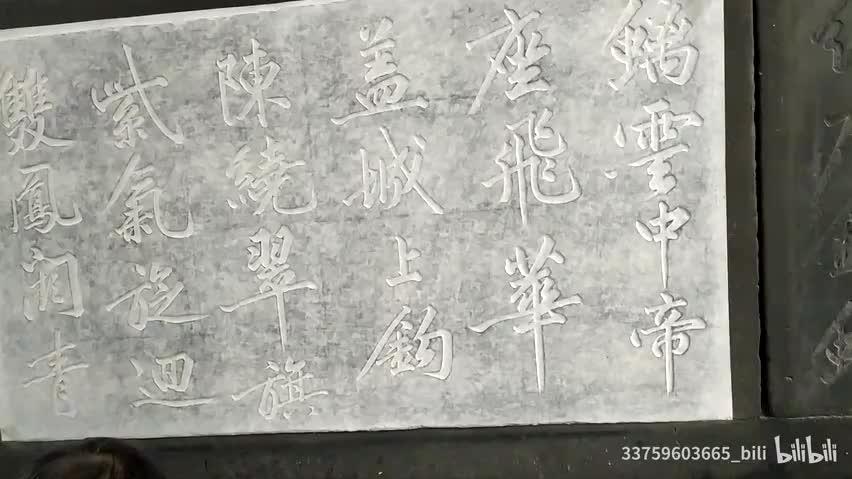 鏞雲中帝
座飛華
盖城上鈎
陳繞翠旗
紫氣旋迴
雙鳳闕青
33759603665_bili bilibili